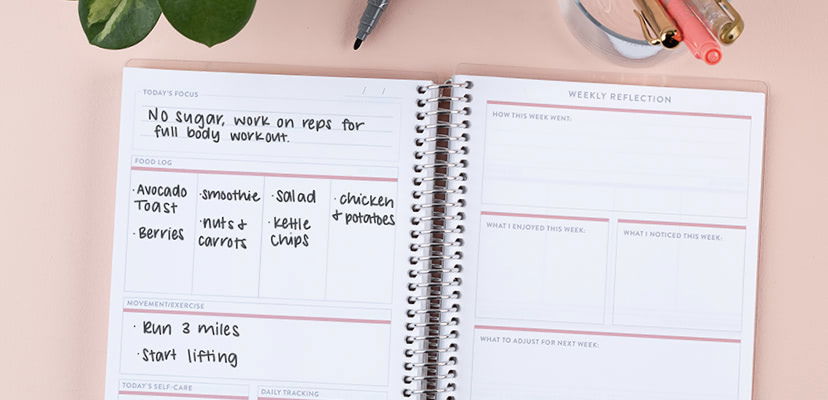 TODAY'S FOCUS / /
No sugar, work on reps for
full body workout.
FOOD LOG
· Avocado
Toast
· Berries
· smoothie
· nuts &
carrots
· salad
· kettle
chips
· chicken
& potatoes
MOVEMENT/EXERCISE
· Run 3 miles
· Start lifting
TODAY'S SELF-CARE
DAILY TRACKING
WEEKLY REFLECTION
HOW THIS WEEK WENT:
WHAT I ENJOYED THIS WEEK:
WHAT I NOTICED THIS WEEK:
WHAT TO ADJUST FOR NEXT WEEK: